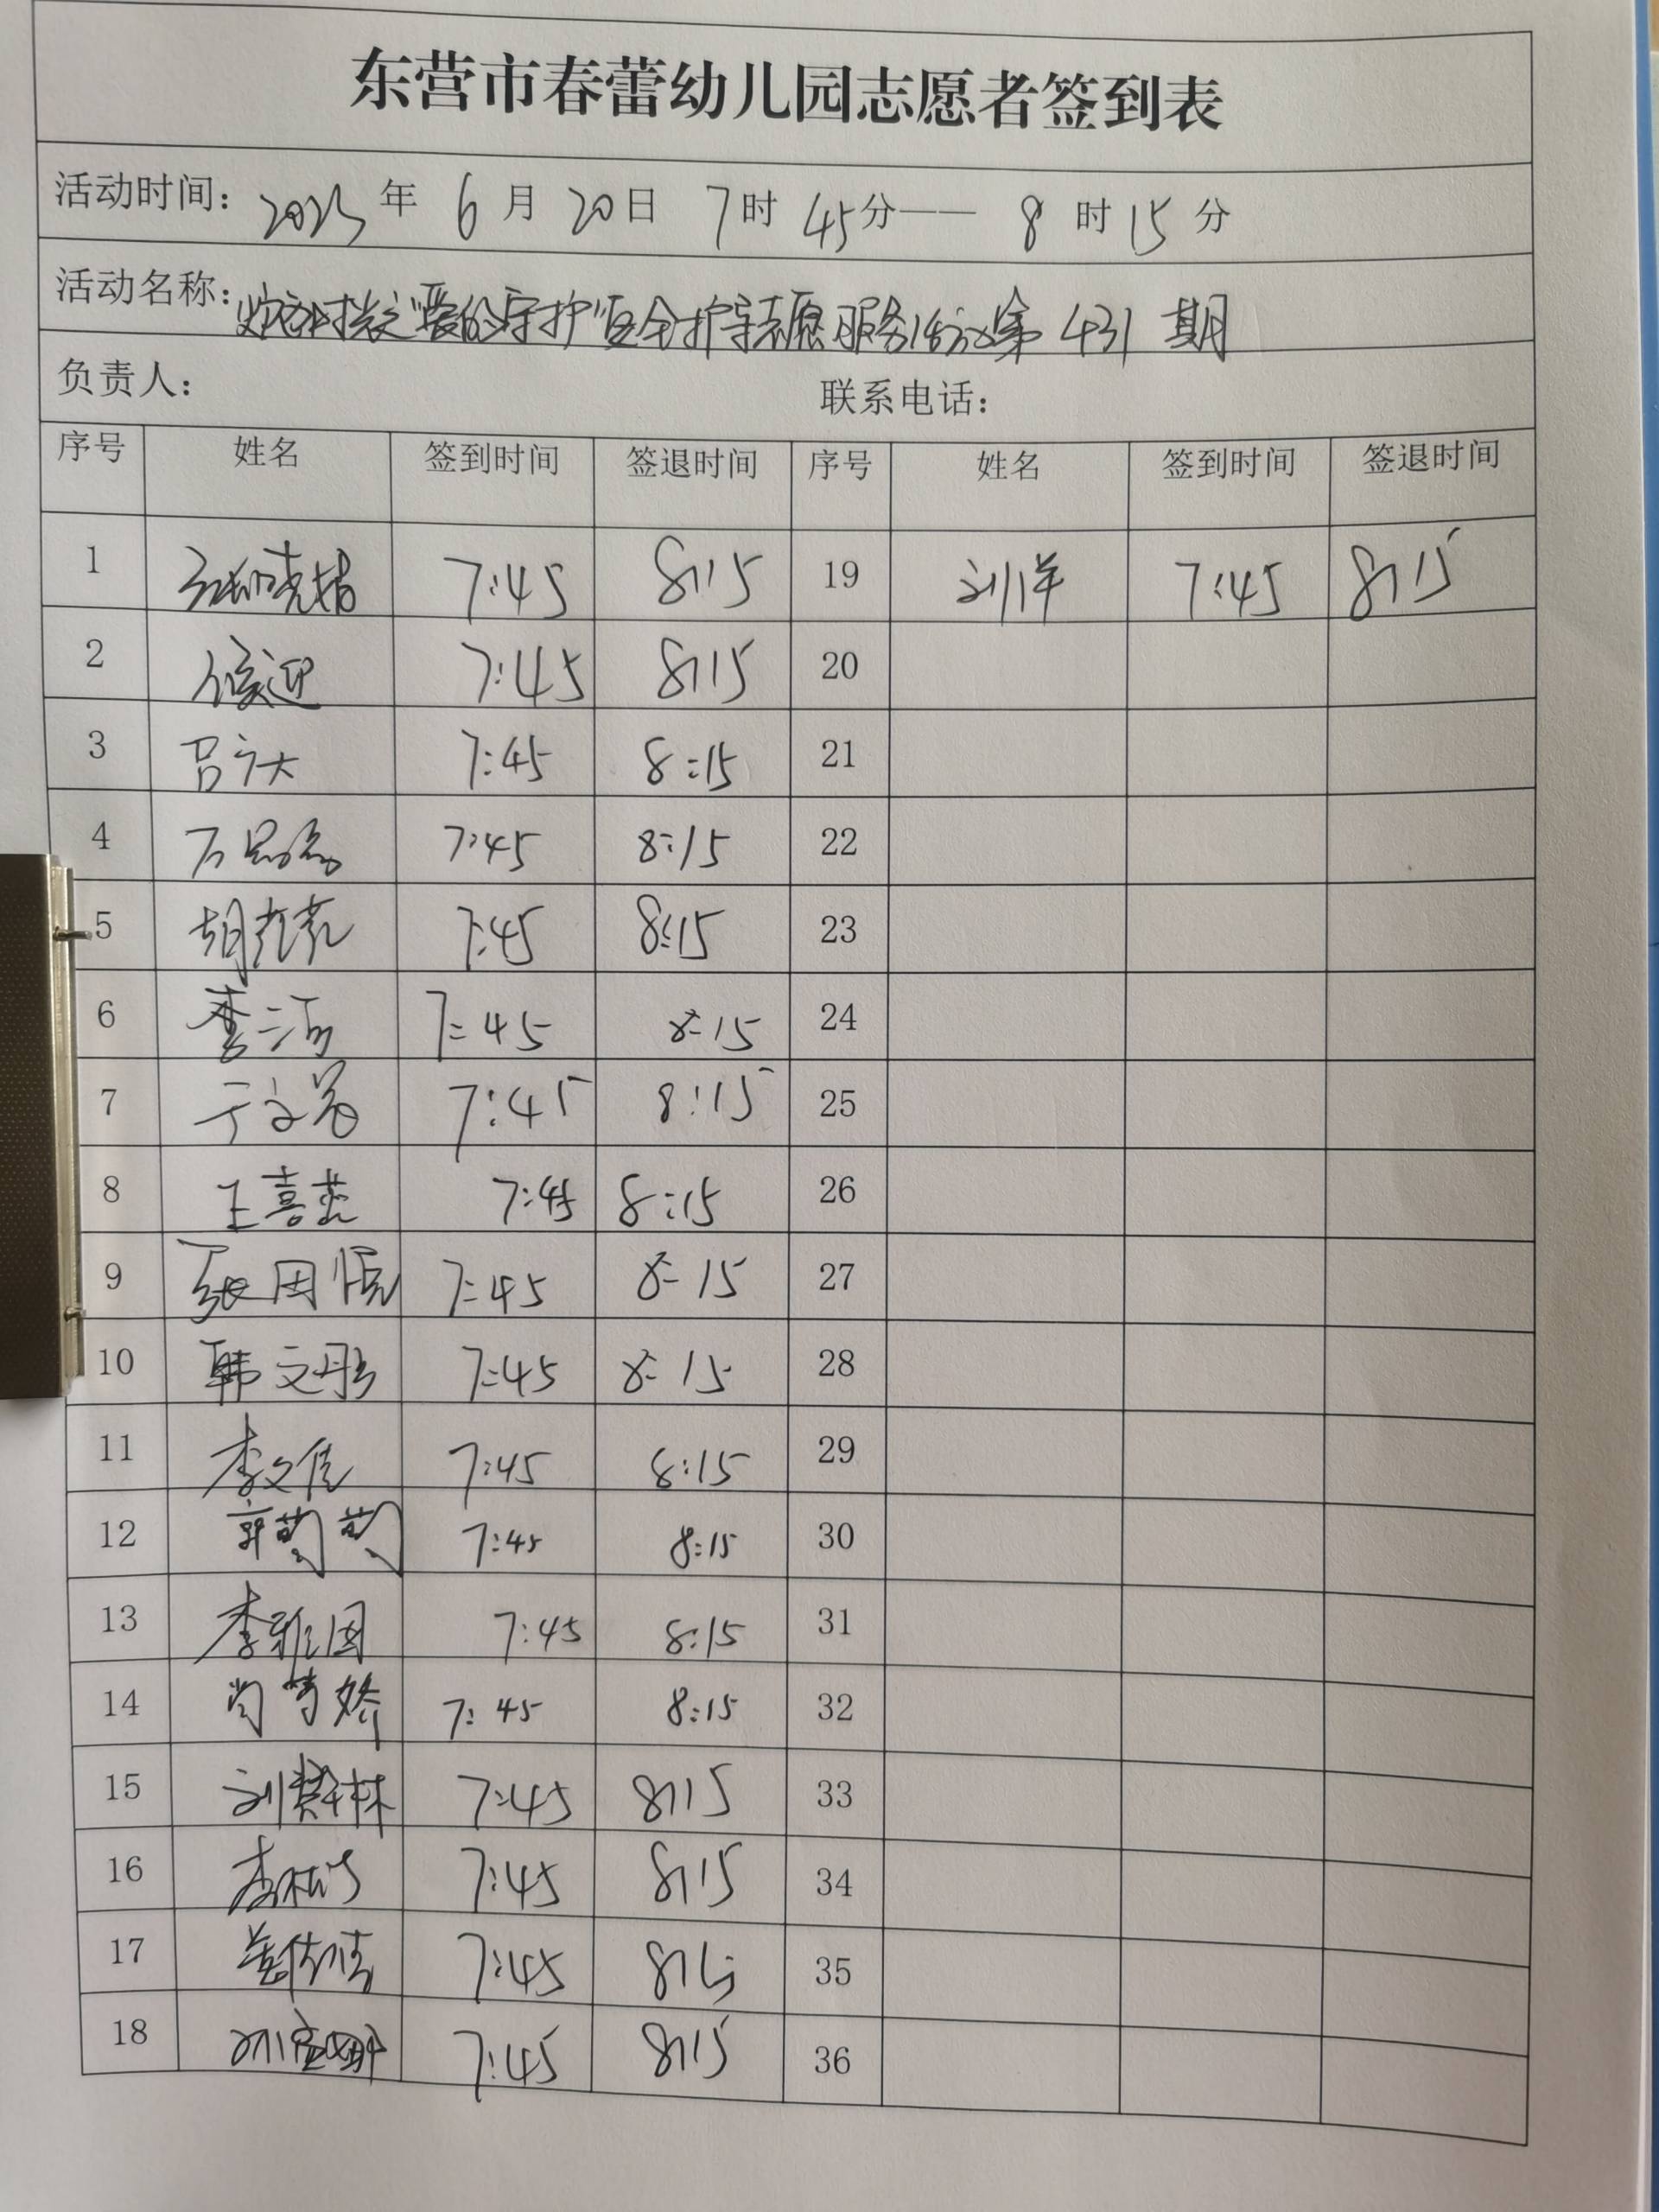 东营市春蕾幼儿园志愿者签到表
活动时间: 2023年 6月 20日 7时 45分—— 8时 15分
活动名称: "爱的守护"安全护导志愿服务活动第 431 期
负责人: 联系电话:
序号 姓名 签到时间 签退时间 序号 姓名 签到时间 签退时间
1 7:45 8:15 19 刘洋 7:45 8:15
2 侯迎 7:45 8:15 20
3 吕 7:45 8:15 21
4 7:45 8:15 22
5 胡花花 7:45 8:15 23
6 李 7:45 8:15 24
7 于文 7:45 8:15 25
8 王喜 7:45 8:15 26
9 张田恬 7:45 8:15 27
10 韩文彤 7:45 8:15 28
11 李文佳 7:45 8:15 29
12 郭萌萌 7:45 8:15 30
13 李雅囡 7:45 8:15 31
14 肖梦娇 7:45 8:15 32
15 刘赞林 7:45 8:15 33
16 李松 7:45 8:15 34
17 姜倩倩 7:45 8:15 35
18 7:45 8:15 36